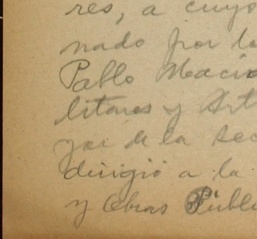 res, a cuyo
nado por la
Pablo Macia
litares y Art
de la Sec
dirigió a la
y Obras Públi